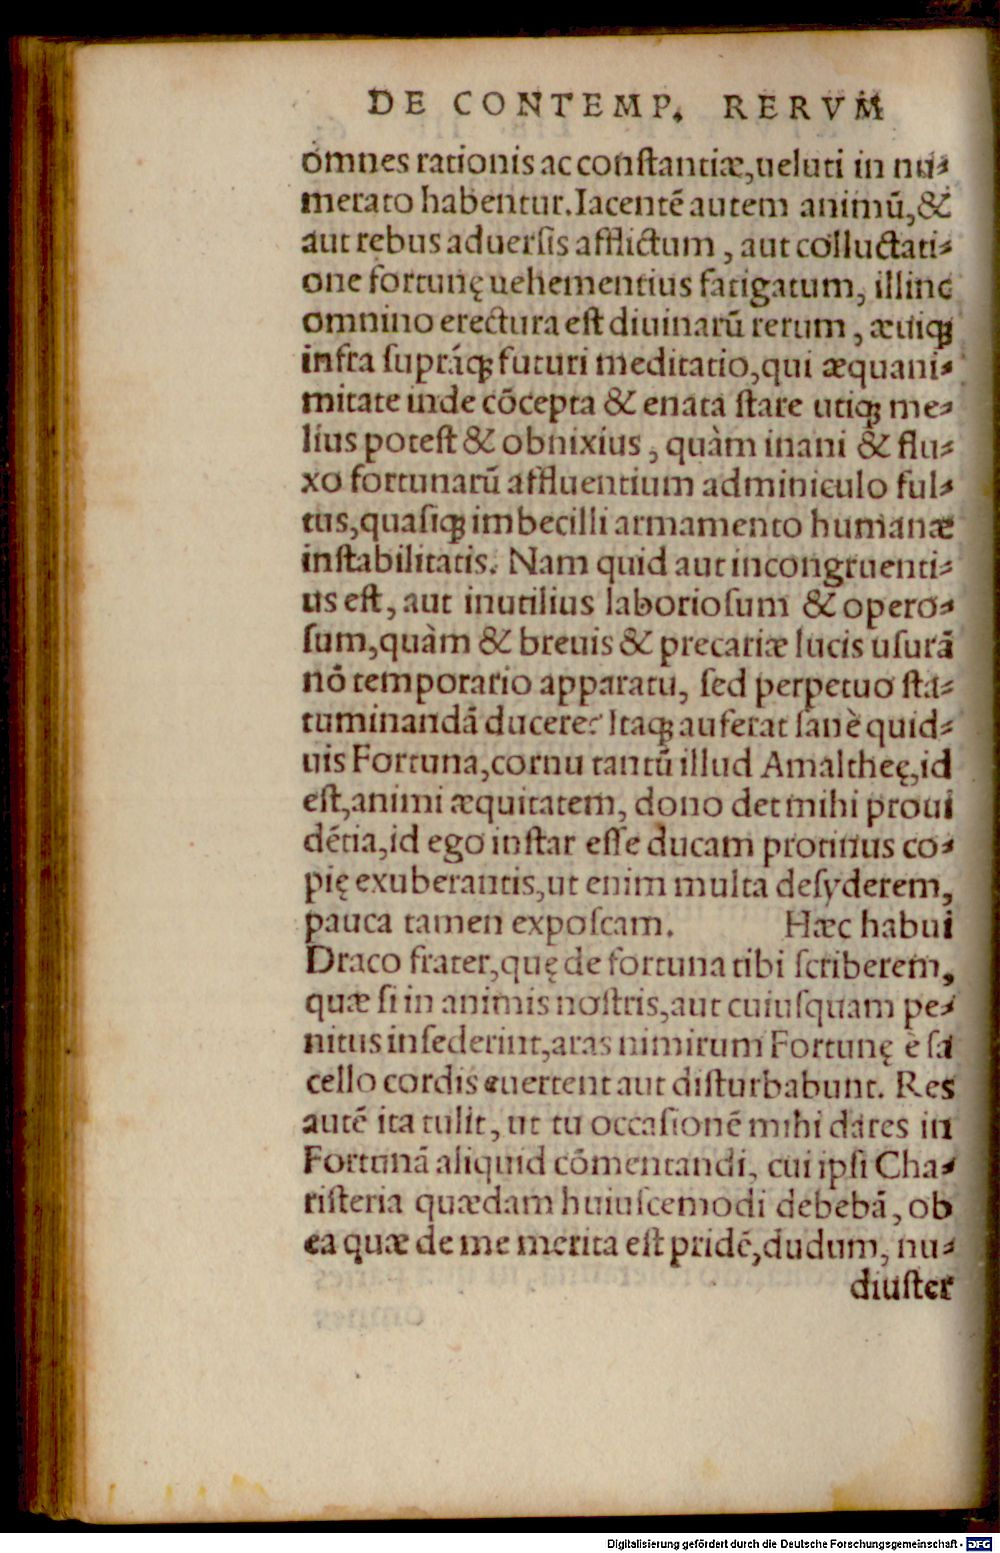 DE CONTEMP. RERVM
omnes rationis ac constantiæ,ueluti in nu-
merato habentur.Iacentē autem animū,&
aut rebus aduersis afflictum, aut colluctati-
one fortunę uehementius fatigatum, illinc
omnino erectura est diuinarū rerum, æuiq́;
infra supráq; futuri meditatio,qui æquani-
mitate inde cōcepta & enata stare utiq; me-
lius potest & obnixius, quàm inani & flu-
xo fortunarū affluentium adminiculo ful-
tus,quasiq; imbecilli armamento humanæ
instabilitatis. Nam quid aut incongruenti-
us est, aut inutilius laboriosum & opero-
sum,quàm & breuis & precariæ lucis usurā
nō temporario apparatu, sed perpetuo sta-
tuminandā ducere? Itaq; auferat sanè quid-
uis Fortuna,cornu tantū illud Amaltheę,id
est,animi æquitatem, dono det mihi proui
dētia,id ego instar esse ducam protinus co-
pię exuberantis,ut enim multa desyderem,
pauca tamen exposcam. Hæc habui
Draco frater,quę de fortuna tibi scriberem,
quæ si in animis nostris,aut cuiusquam pe-
nitus insederint,aras nimirum Fortunę è sa
cello cordis euertent aut disturbabunt. Res
autē ita tulit, ut tu occasionē mihi dares in
Fortunā aliquid cōmentandi, cui ipsi Cha-
risteria quædam huiuscemodi debebā, ob
ea quæ de me merita est pridē,dudum, nu-
diuster
Digitalisierung gefördert durch die Deutsche Forschungsgemeinschaft - DFG